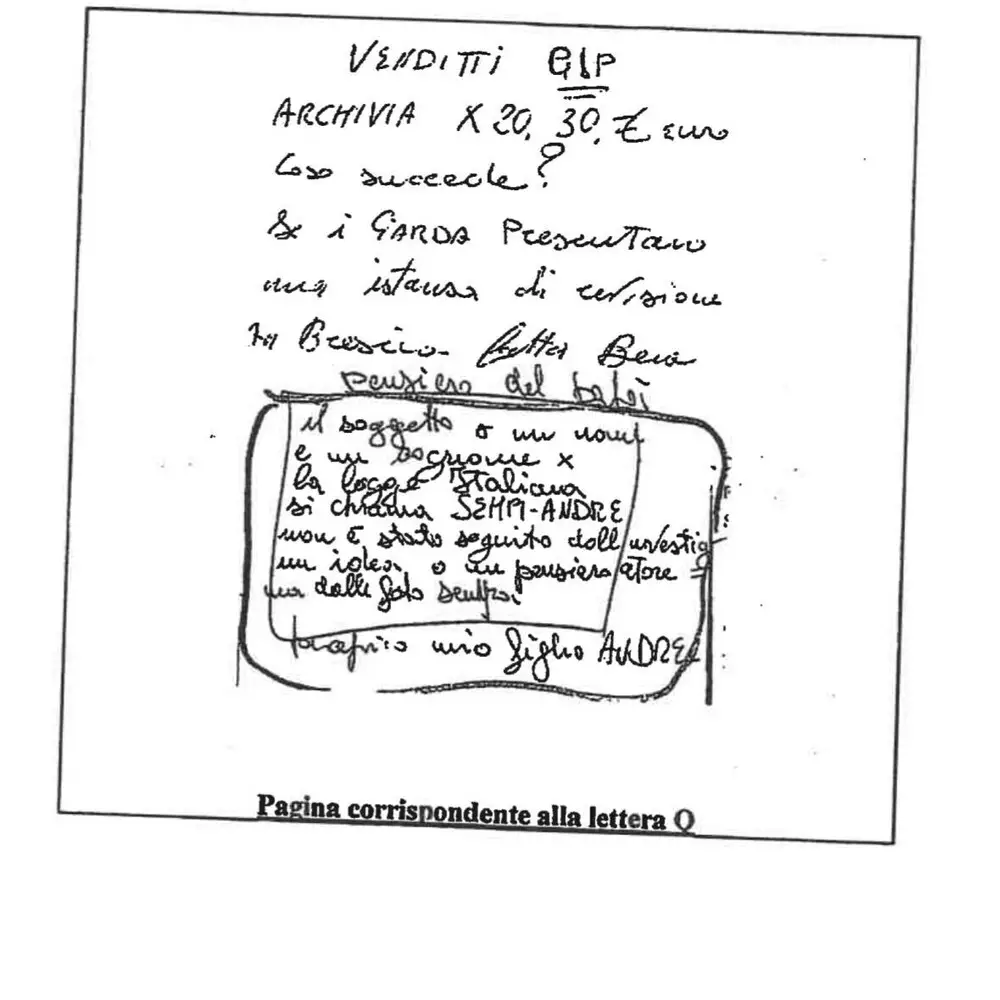 VENDITTI GIP
ARCHIVIA X 20, 30, € euro
Cosa succede?
Se i GARDA Presentano
una istansa di revisione
in Brescia fatta Bene
pensiero del
il soggetto o un nome
e un cogniome x
la legge Italiana
si chiama SEMPI-ANDRE
non è stato seguito dall investig
un idea, o un pensiero atore =
ma dalle foto sembra
proprio mio figlio ANDREA
Pagina corrispondente alla lettera Q